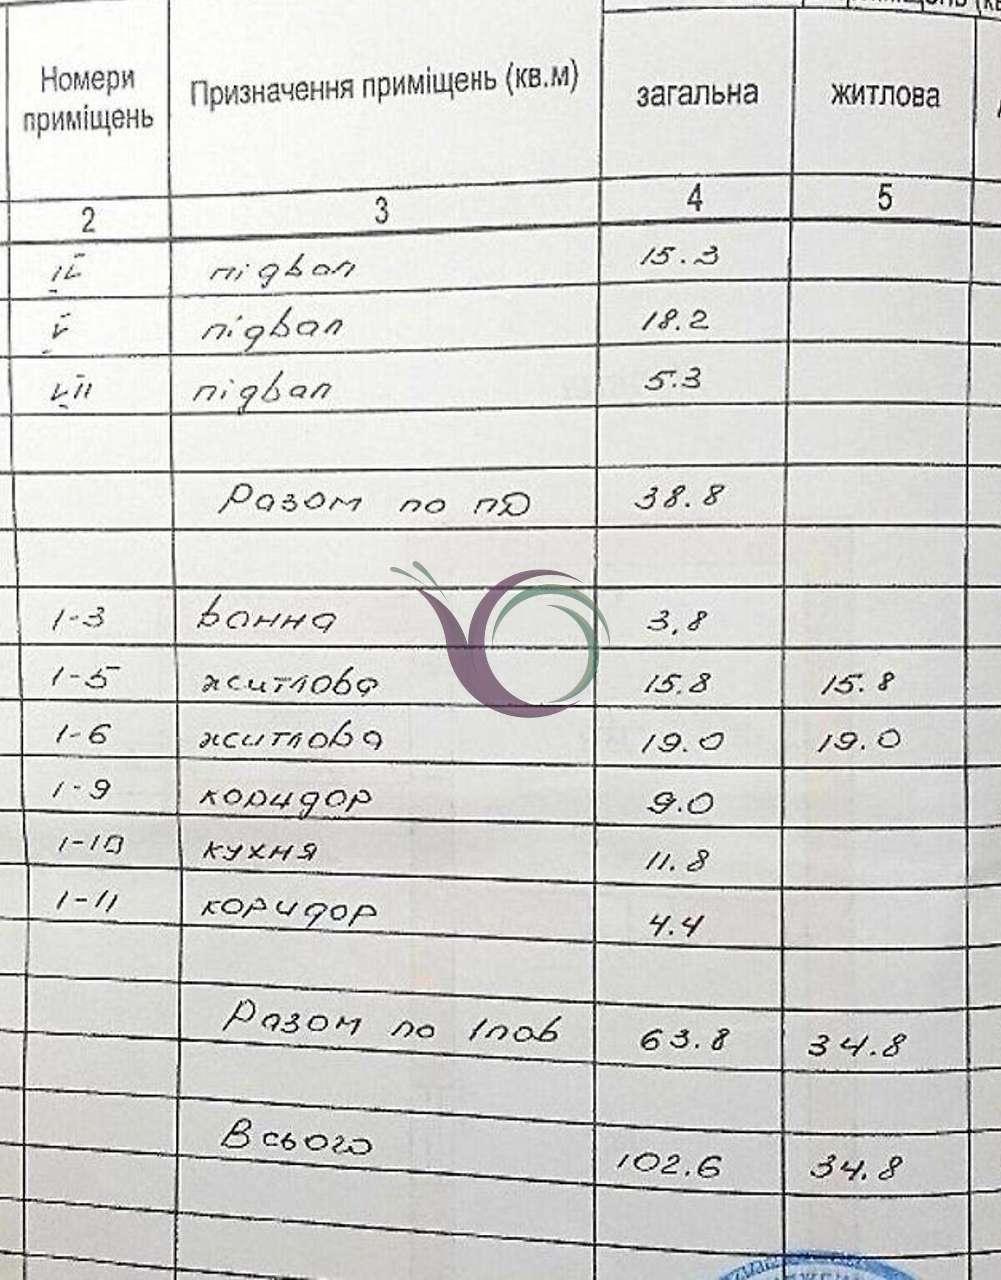 Номери приміщень
Призначення приміщень (кв.м)
загальна
житлова
2 3 4 5
підвал 15.3
V підвал 18.2
VII підвал 5.3
Разом по пД 38.8
1-3 ванна 3.8
1-5 житлова 15.8 15.8
1-6 житлова 19.0 19.0
1-9 коридор 9.0
1-10 кухня 11.8
1-11 коридор 4.4
Разом по 1пов 63.8 34.8
Всього 102.6 34.8